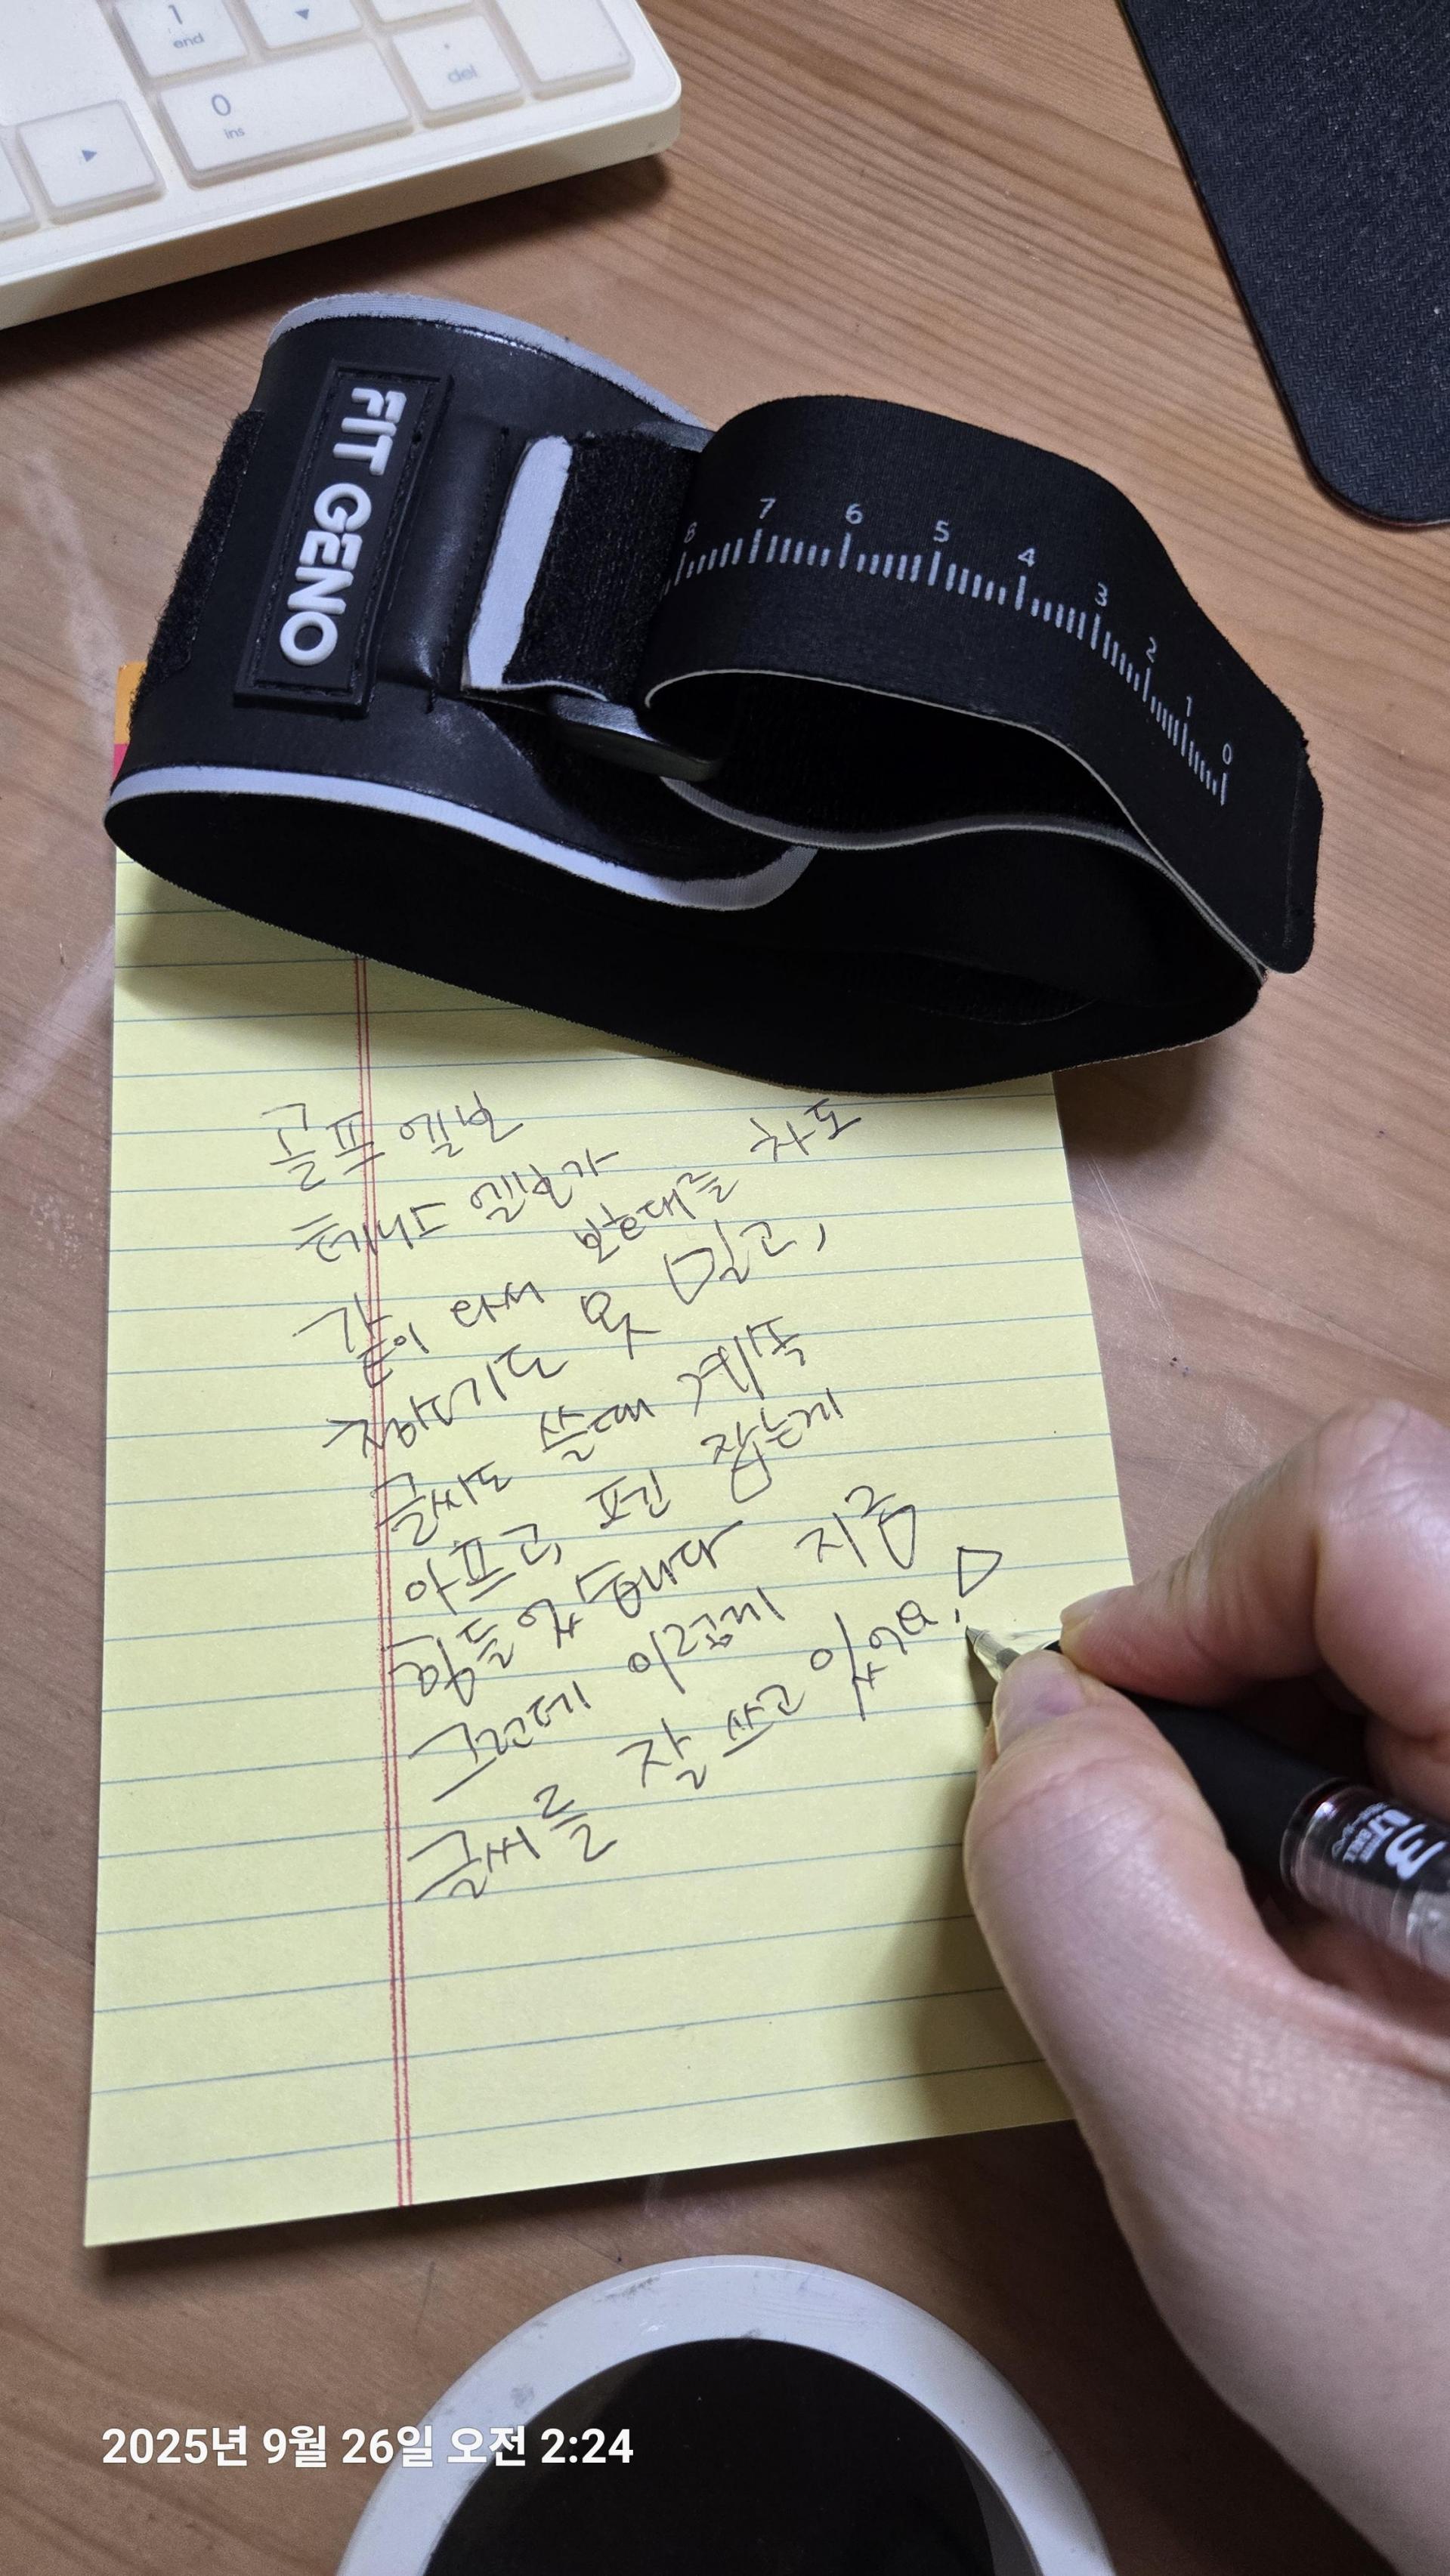 1
end
0
ins
del
FIT GENO
8 7 6 5 4 3 2 1 0
골프엘보
테니스 엘보가
같이 와서 보호대를 차도
차도기도 못 밀고,
글씨도 쓸때 계속
아프고, 펜 잡는게
힘들었습니다
그런데 이렇게 지금
글씨를 잘 쓰고 있어요!
3
0.7
2025년 9월 26일 오전 2:24